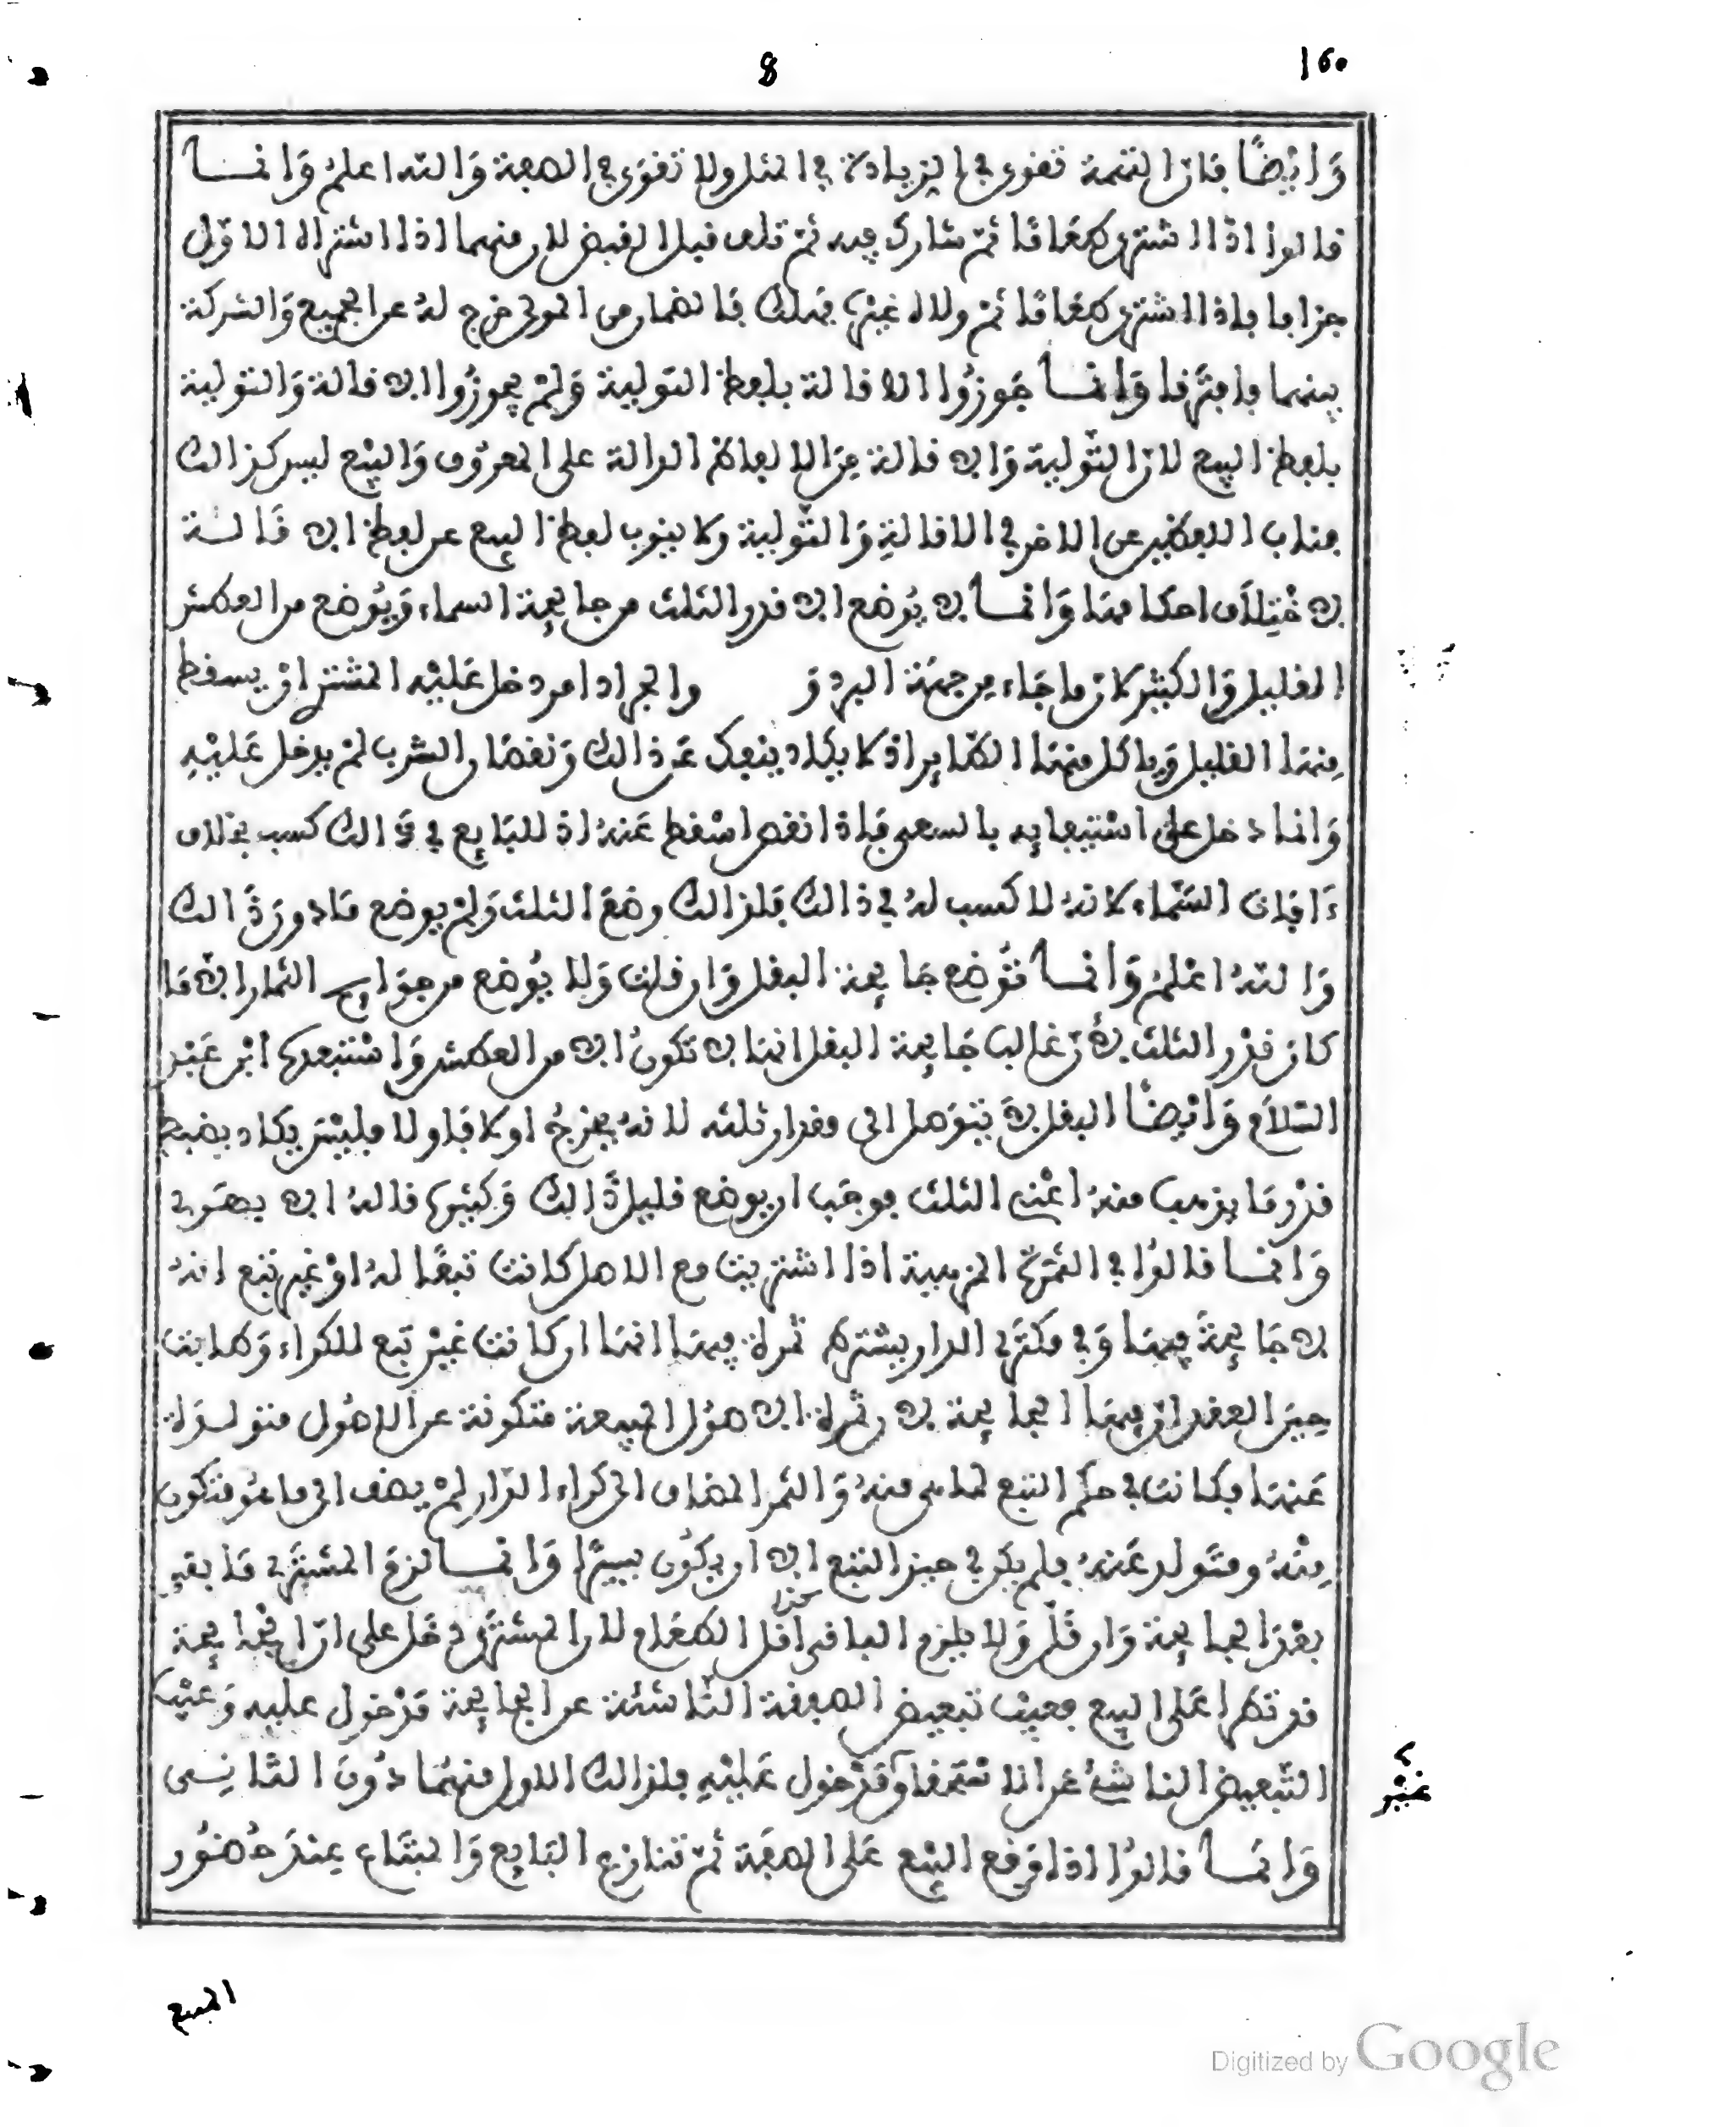 160
8
وَايْضًا فان التهمة تقوى في الزيادة في المثل ولا تقوَى في الصفة وَالله اعلمُ وَانمــا
قالوا اذا اشترى طعَامًا ثمّ شارك فيه ثمّ تلف قبل القبض للا منهما اذا اشتراه الاوّل
جزافا فاذا اشترى طعَامًا ثمّ ولاه غيرَه فهلك فالضمان من المولى خرج لهُ عن الجميع وَالشركة
بينهما فافترقا وَانمــا جَوزُوا الاقالة بلفظ التولية وَلمْ يجوزُوا الاقالة وَالتولية
بلفظ البيع لان التّولية وَالاقالة مِنَ الالفاظ الدالة على المعروف وَالبيْع ليس كذالك
فناب اللفظين عن الاخر في الاقالةِ وَالتّولية ولا ينوب لفظ البيع عن لفظ الاقَالــة
لاخْتِلاَف احكامهَا وَانمــا لا يُوضع الا قدر الثلث من جايحة السماء وَيُوضع من العطش
القليل وَالكثير لان ما جَاء من جهَة البرد وَ والجراد امر دخل عَليْه المشتر اذ يسقط
مِنهَا القليل وَياكل منهَا الطّاير اذ لا يكاد ينفك عَن ذالك وَنقصَان الشرب لمْ يدخل عَليْهِ
وَانما دخل على اسْتيفايه بالسعى فاذا نقص اسْقط عَنهُ اذ للبَايع في ذَالك كسب بخلاف
ءَافات السّمَاء لانهُ لا كسب لهُ في ذالك فلذالك وضعَ الثلث وَلمْ يوضع مَا دون ذَالك
وَاللهُ اعْلمُ وَانمــا تُوضع جَايحة البقل وَان قلت وَلا يُوضع من جوَايح الثمار الا مَا
كان قدْر الثلث لأنّ غالب جَايحة البقل انما لا تكونُ الا من العطش وَاسْتبعدها ابْن عَبْد
السّلاَم وَايْضًا البقل لا يتوَصل الى مقدار ثلثه لانهُ يخرجُ اولا فاولا فليْسَ يكاد يضبط
قدْر مَا يذهب منهُ اعْنى الثلث فوجَب ان يوضع قليل ذَالك وَكثيره قالهُ الابهرى
وَانمــا قالوُا في الثمَرة المزهية اذا اشتريت مع الاصل كانت تبعًا لهُ اوْ غير تبع انهُ
لا جَايحةَ فيهَا وَفي مكتَرى الدار يشترط ثمرة فيهَا انهَا ان كانت غيْر تبع للكراء وَطابت
حِينَ العقد ان فيهَا الجايحة لان ثمرة الاصُول المبيعة متكونة عن الاصُول متولــدَة
عَنهَا فكانت في حكْم التبع لما هى منهُ وَالثمر المضاف الى كراء الدّار لمْ يضف الى ما هُو متكون
مِنْهُ ومتَولد عَنهُ فلم يكن في حيز التبع الا ان يكُون يسيرًا وَانمــا لزمَ المشترَى مَا بقى
بعْد الجايحة وَان قَلّ وَلا يلزم الباقى اقل الطعَام عند لان المشترى دخل على ان الجايحة
قد تطرا عَلى البيع فعيْب تبعيض الصفقة النّاشئة عن الجايحة مَدْخول عليه وَعيْب
التّبعيض الناشئ عن الاستحقاق مَدْخول عَليْهِ فلذالك الاول منهمَا دُونَ الثانِــى
غيْر
وَانمَــا قالوُا اذا وَقع البيْع عَلى الصفَة ثمّ تنازع البَايع وَالمبتَاع عِندَ حُضوُر
المبيع
Digitized by Google